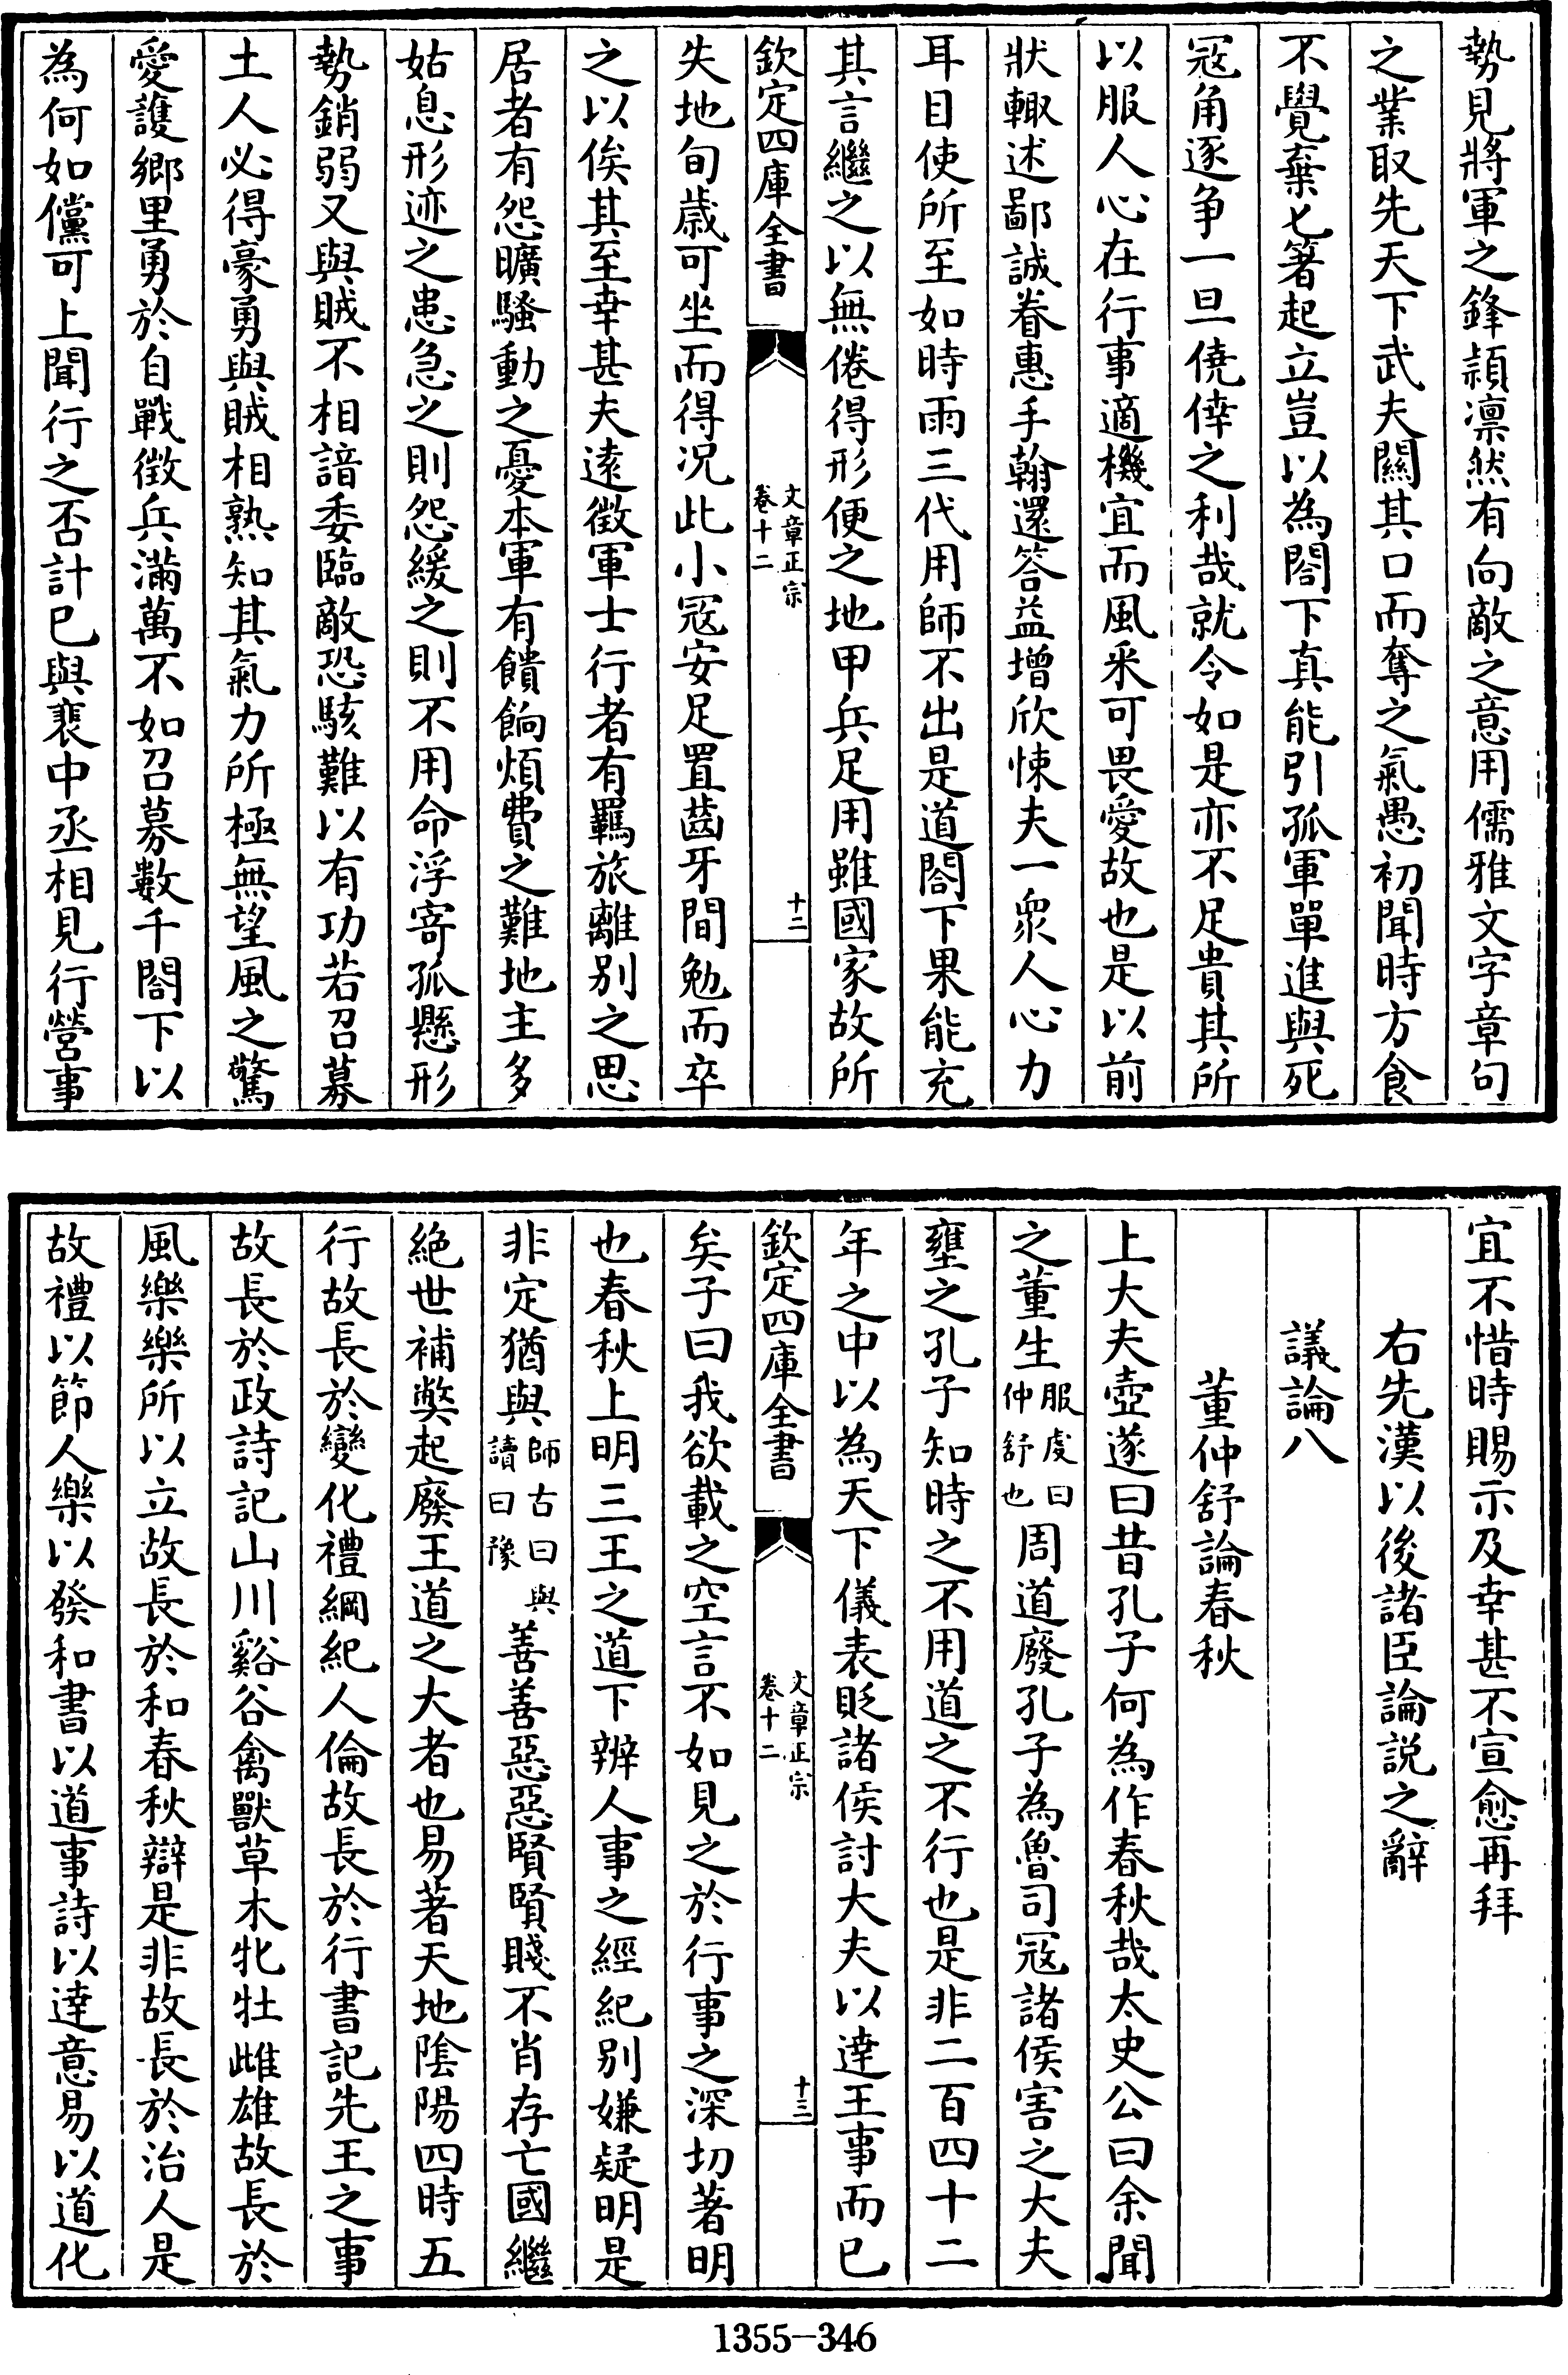 勢見將軍之鋒穎凛然有向敵之意用儒雅文字章句
之業取先天下武夫關其口而奪之氣愚初聞時方食
不覺棄匕箸起立豈以為閤下真能引孤軍單進與死
冦角逐争一旦僥倖之利哉就令如是亦不足貴其所
以服人心在行事適機宜而風采可畏愛故也是以前
狀輙述鄙誠眷惠手翰還答益增欣悚夫一衆人心力
耳目使所至如時雨三代用師不出是道閤下果能充
其言繼之以無倦得形便之地甲兵足用雖國家故所
欽定四庫全書
文章正宗
卷十二
十二
失地旬歳可坐而得况此小冦安足置齒牙間勉而卒
之以俟其至幸甚夫逺徵軍士行者有羈旅離别之思
居者有怨曠騷動之憂本軍有饋餉煩費之難地主多
姑息形迹之患急之則怨緩之則不用命浮寄孤懸形
勢銷弱又與賊不相諳委臨敵恐駭難以有功若召募
土人必得豪勇與賊相熟知其氣力所極無望風之驚
愛䕶鄉里勇於自戰徴兵滿萬不如召募數千閤下以
為何如儻可上聞行之否計已與裴中丞相見行營事
宜不惜時賜示及幸甚不宣愈再拜
右先漢以後諸臣論説之辭
議論八
董仲舒論春秋
上大夫壺遂曰昔孔子何為作春秋哉太史公曰余聞
之董生服䖍曰仲舒也周道廢孔子為魯司冦諸侯害之大夫
壅之孔子知時之不用道之不行也是非二百四十二
年之中以為天下儀表貶諸侯討大夫以逹王事而已
欽定四庫全書
文章正宗
卷十二
十三
矣子曰我欲載之空言不如見之於行事之深切著明
也春秋上明三王之道下辨人事之經紀别嫌疑明是
非定猶與師古曰與讀曰豫善善惡惡賢賢賤不肖存亡國繼
絶世補弊起廢王道之大者也易著天地隂陽四時五
行故長於變化禮綱紀人倫故長於行書記先王之事
故長於政詩記山川谿谷禽獸草木牝牡雌雄故長於
風樂樂所以立故長於和春秋辯是非故長於治人是
故禮以節人樂以發和書以道事詩以逹意易以道化
1355-346